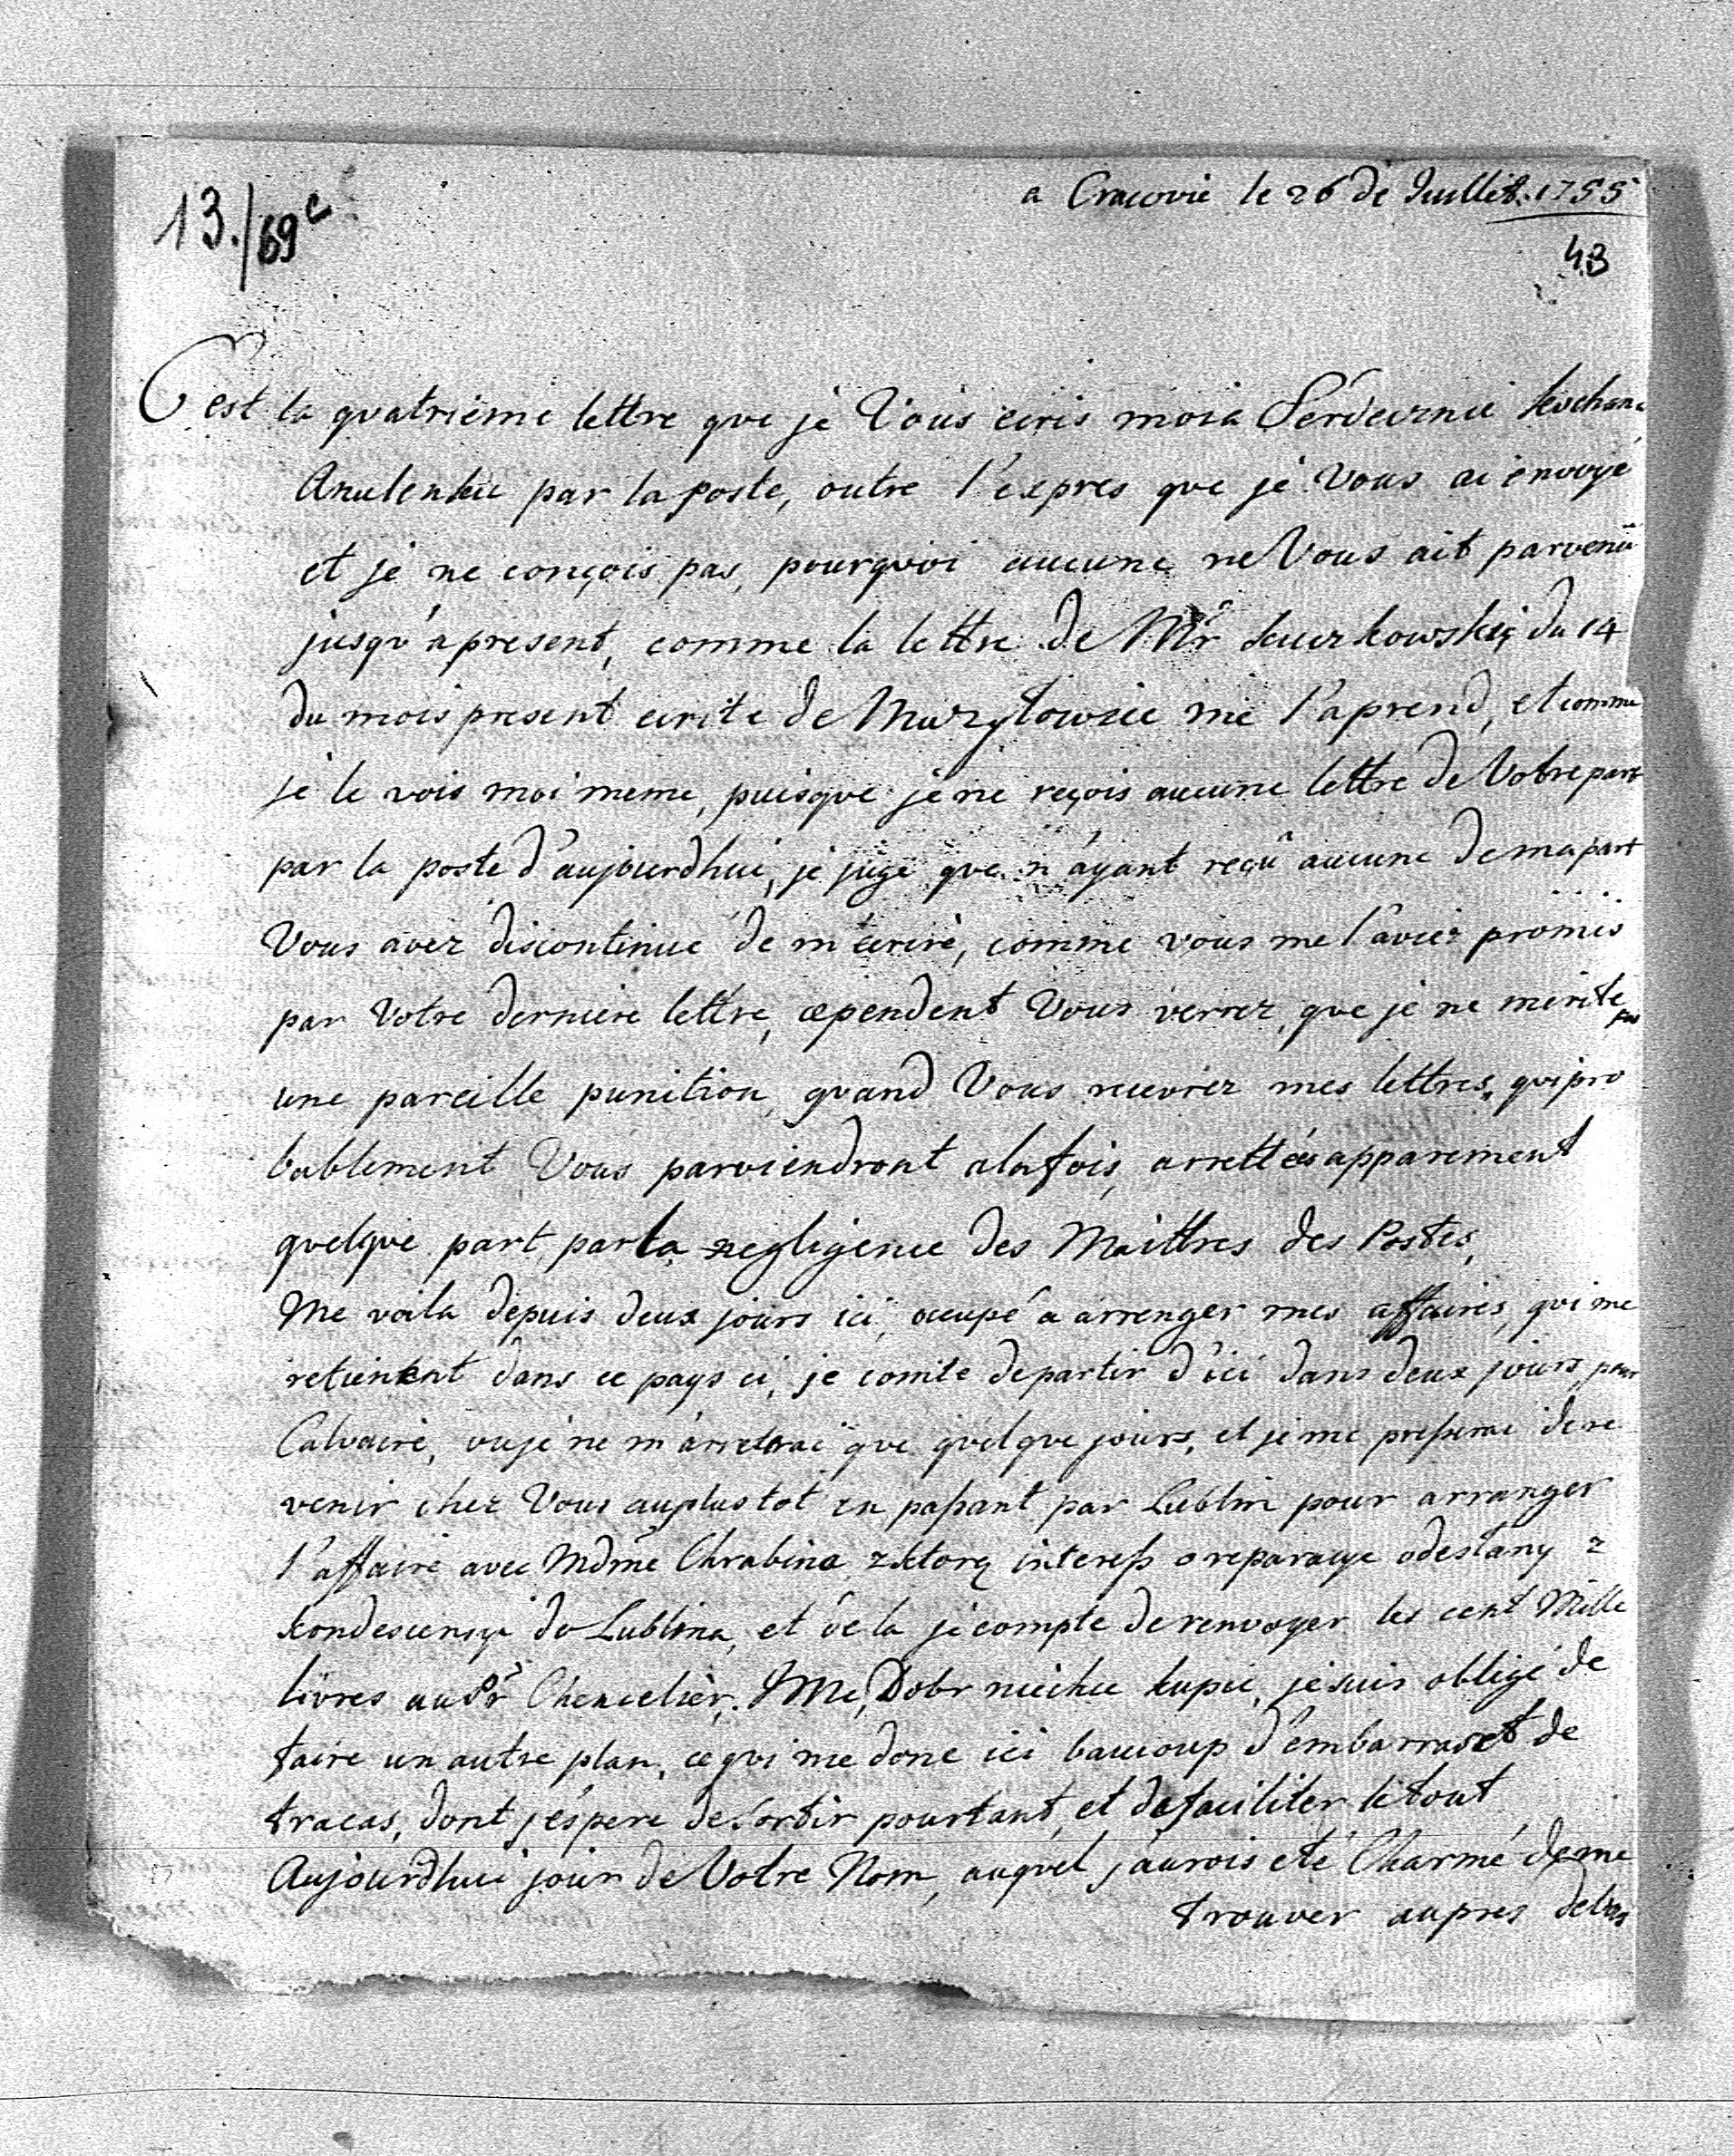 a Cracovie le 26 de Juillet. 1755
13./69c
43
C'est la qvatriéme lettre que je Vous ecris moia Serdecznie kochana
Anulenku par la poste, outre l'expres que je Vous ai envoyé
et je ne conçois pas, pourqvoi aucune ne Vous ait parvenü
jusqv'apresent, comme la lettre de Mr du 14
du mois present ecrite de me l'aprend, et comme
je le vois moi meme, puisque je ne reçois aucune lettre de Votre part
par la poste d'aujourdhui, je juge que n'ayant reçû aucune de ma part
Vous avez discontinué de m'ecrire, comme vous me l'aviez promis
par Votre derniere lettre, cependent Vous verrez, que je ne merite pas
une pareille punition, qvand Vous recevrez mes lettres, qvi pro
bablement Vous parviendront alafois, arrettées apparement
quelqve part, par la negligence des Maittres des Postes,
Me voila depuis deux jours ici, ocupé a arrenger mes affaires, qvi me
retienent dans ce pays ci, je comte departir d'ici dans deux jours, pour
Calvaire, ou je ne m'arreterai que qvelqve jours, et je me presserai de re
venir chez Vous auplustot en passant par Lublin pour arranger
l'affaire avec Mdme Chrabina z ktorą interess o reparacye odeslany z
kondescensyi do Lublina, et de la je compte de renvoyer les cent Mille
livres au Sr Chencelier. JMc Dobr niechce kupic, je suis obligé de
faire un autre plan, ce qvi me done ici baucoup d'embarras et de
tracas, dont j'éspere de sortir pourtant, et de faciliter le tout
Aujourdhui jour de Votre Nom, auqvel j'aurois eté Charmé de me
trouver aupres de Vous